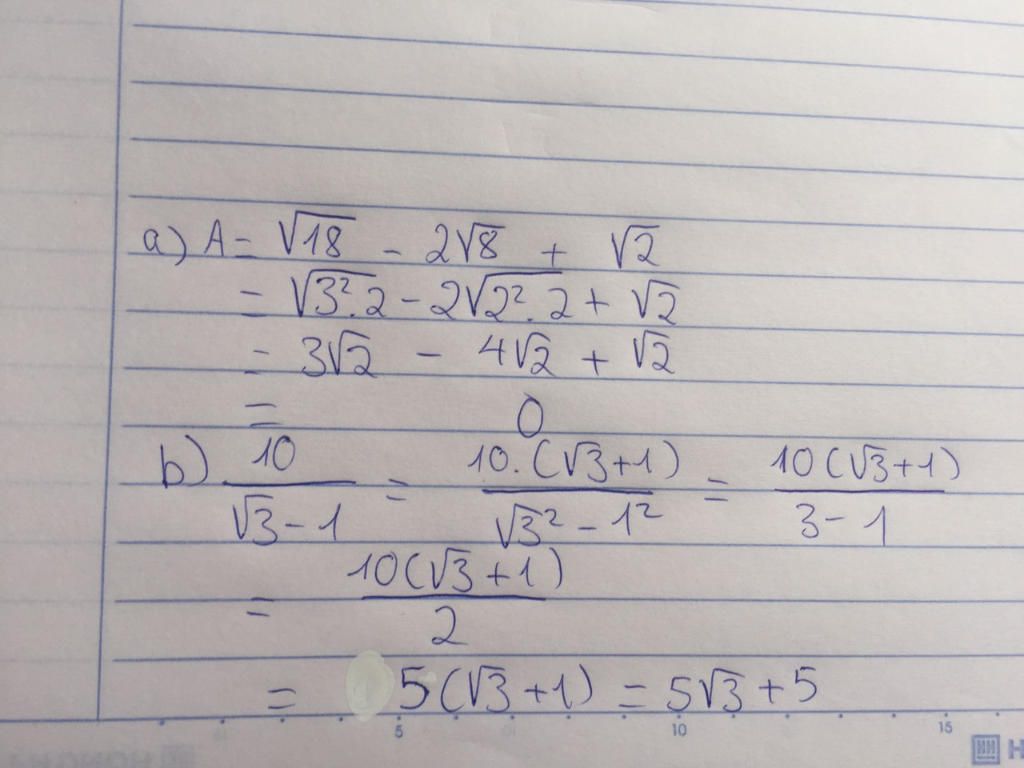 a) A = √18 - 2√8 + √2
= √3².2 - 2√2².2 + √2
= 3√2 - 4√2 + √2
= 0
b) 10/(√3 - 1) = 10.(√3+1)/(√3² - 1²) = 10(√3+1)/(3 - 1)
= 10(√3+1)/2
= 5(√3+1) = 5√3 + 5
5 10 15
H